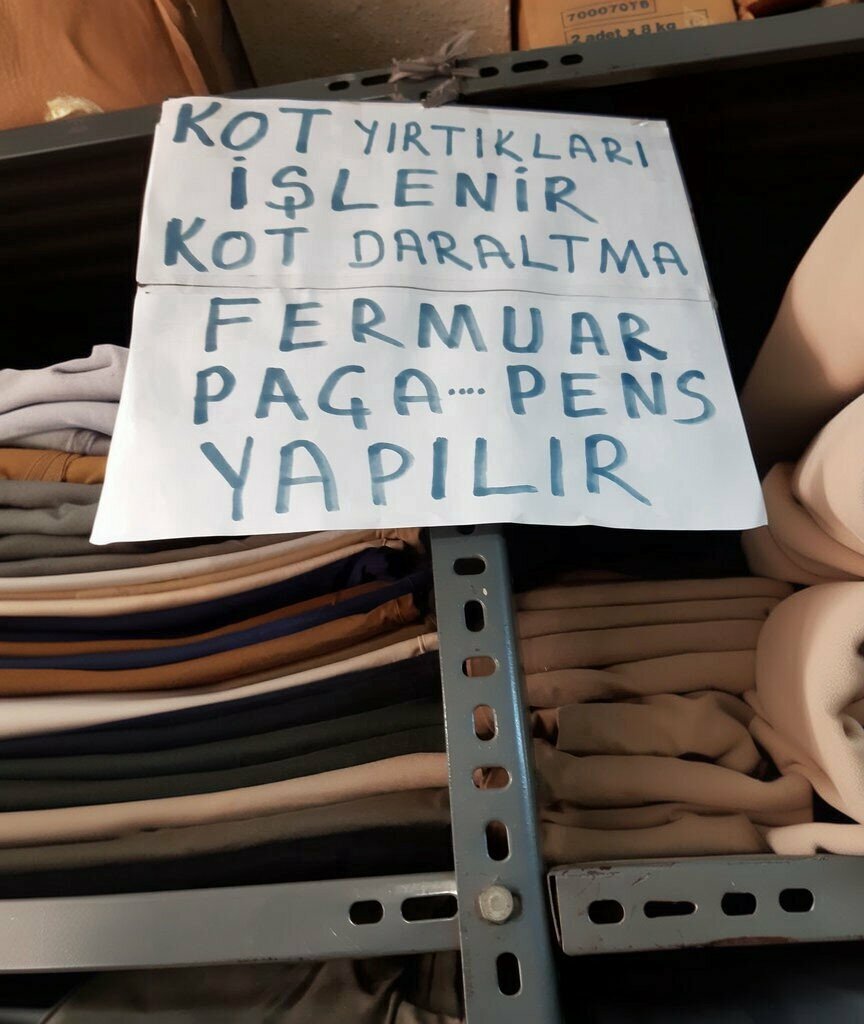 700070TB
2 adet x 8 kg
KOT YIRTIKLARI
İŞLENİR
KOT DARALTMA
FERMUAR
PAÇA.... PENS
YAPILIR